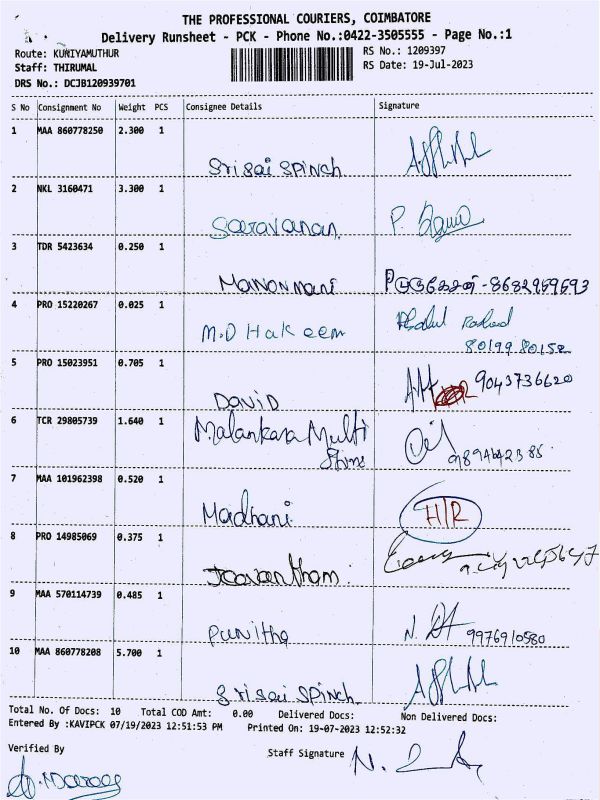 THE PROFESSIONAL COURIERS, COIMBATORE
Delivery Runsheet - PCK - Phone No.:0422-3505555 - Page No.:1
Route: KUNIYAMUTHUR RS No.: 1209397
Staff: THIRUMAL RS Date: 19-Jul-2023
DRS No.: DCJB120939701
S No Consignment No Weight PCS Consignee Details Signature
1 MAA 860778250 2.300 1
Srisai Spinch
2 NKL 3160471 3.300 1
Saravanan. P.
3 TDR 5423634 0.250 1
Manonmani முருகேசன் - 8682969693
4 PRO 15220267 0.025 1
M.D Hakeem
80199 80152
5 PRO 15023951 0.705 1
9043736620
DAVID
6 TCR 29805739 1.640 1
Malankara Multi
7 MAA 101962398 0.520 1
Madhani H/R
8 PRO 14985069 0.375 1
9 MAA 570114739 0.485 1
Punitha N. 9976910580
10 MAA 860778208 5.700 1
Srisai Spinch
Total No. Of Docs: 10 Total COD Amt: 0.00 Delivered Docs: Non Delivered Docs:
Entered By :KAVIPCK 07/19/2023 12:51:53 PM Printed On: 19-07-2023 12:52:32
Verified By Staff Signature N.